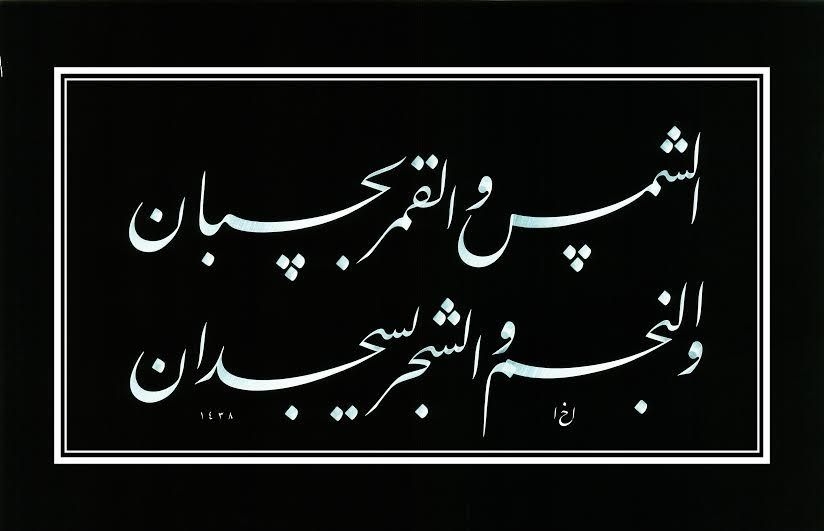 الشمس و القمر بحسبان
و النجم و الشجر يسجدان
١٤٣٨